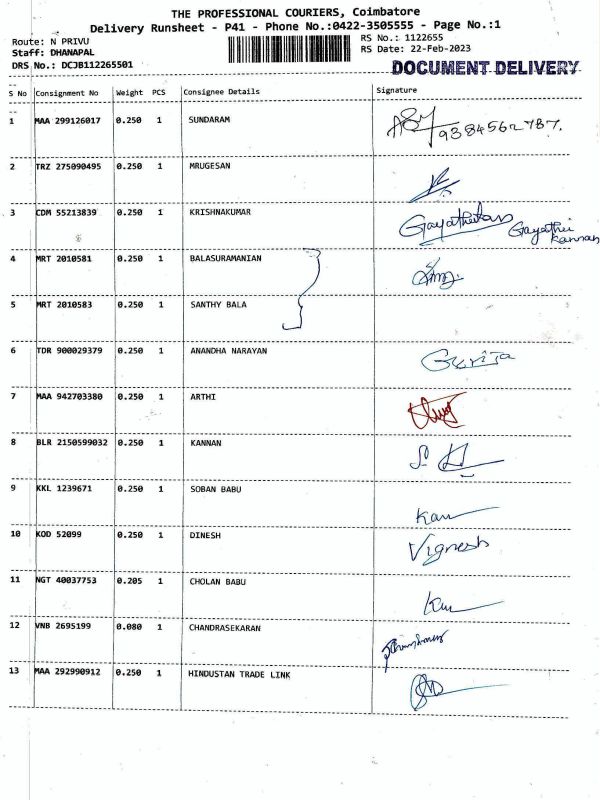 THE PROFESSIONAL COURIERS, Coimbatore
Delivery Runsheet - P41 - Phone No.:0422-3505555 - Page No.:1
Route: N PRIVU
RS No.: 1122655
Staff: DHANAPAL
RS Date: 22-Feb-2023
DRS No.: DCJB112265501
DOCUMENT DELIVERY
S No Consignment No Weight PCS Consignee Details Signature
1 MAA 299126017 0.250 1 SUNDARAM
9384562787.
2 TRZ 275090495 0.250 1 MRUGESAN
3 CDM 55213839 0.250 1 KRISHNAKUMAR
Gayathri
Kannan
4 MRT 2010581 0.250 1 BALASURAMANIAN
5 MRT 2010583 0.250 1 SANTHY BALA
6 TDR 900029379 0.250 1 ANANDHA NARAYAN Girija
7 MAA 942703380 0.250 1 ARTHI
8 BLR 2150599032 0.250 1 KANNAN
9 KKL 1239671 0.250 1 SOBAN BABU
10 KOD 52099 0.250 1 DINESH Vignesh
11 NGT 40037753 0.205 1 CHOLAN BABU
12 VNB 2695199 0.080 1 CHANDRASEKARAN
13 MAA 292990912 0.250 1 HINDUSTAN TRADE LINK